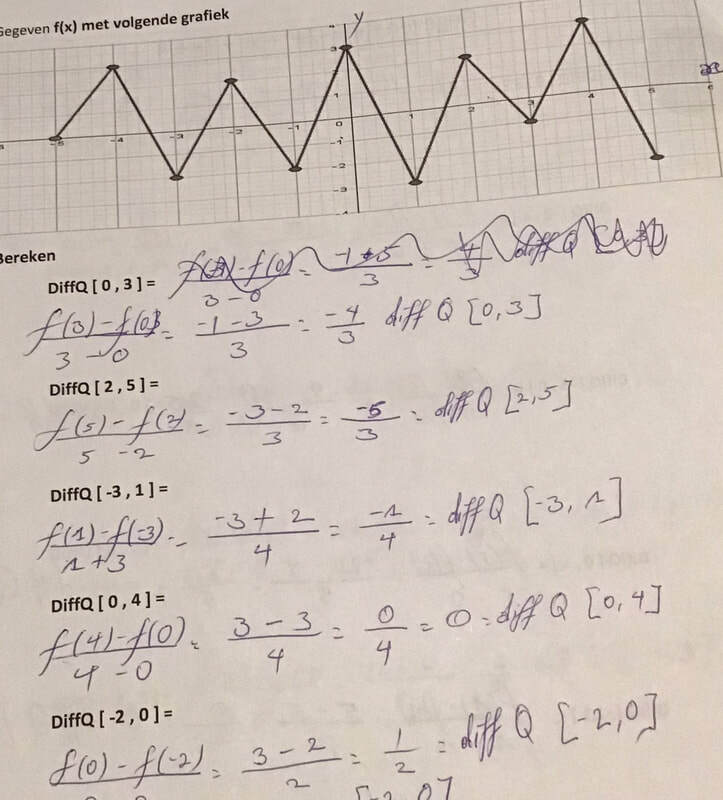 Gegeven f(x) met volgende grafiek
y
3
1
-5 -4 -3 -2 -1 0 1 2 3 4 5 6
-1
-2
-3
-4
Bereken
DiffQ [ 0 , 3 ] =
f(3) - f(0) / 3 - 0 = -1 - 3 / 3 = -4 / 3 diff Q [0, 3]
DiffQ [ 2 , 5 ] =
f(5) - f(2) / 5 - 2 = -3 - 2 / 3 = -5 / 3 = diff Q [2, 5]
DiffQ [ -3 , 1 ] =
f(1) - f(-3) / 1 + 3 = -3 + 2 / 4 = -1 / 4 = diff Q [-3, 1]
DiffQ [ 0 , 4 ] =
f(4) - f(0) / 4 - 0 = 3 - 3 / 4 = 0 / 4 = 0 = diff Q [0, 4]
DiffQ [ -2 , 0 ] =
f(0) - f(-2) = 3 - 2 / 2 = 1 / 2 = diff Q [-2, 0]